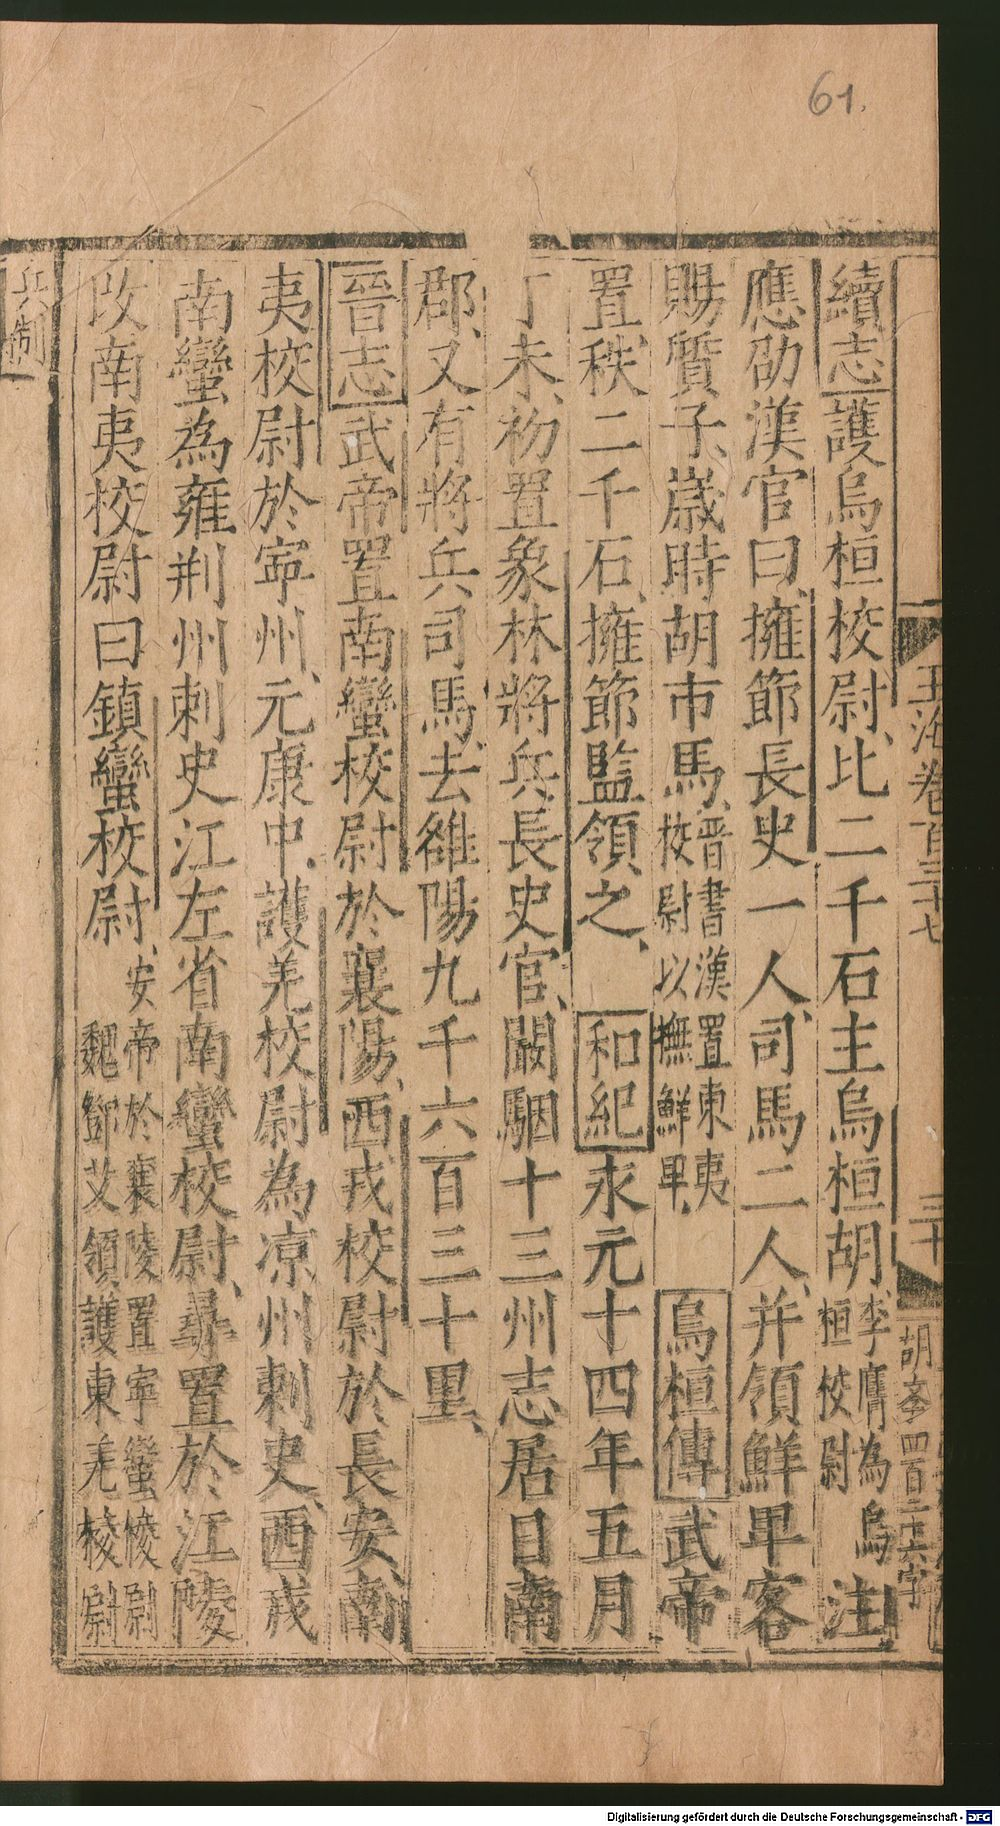 61.
玉海卷百三十七
三十
胡桊四百二十六字
續志護烏桓校尉、比二千石主烏桓胡李膺為烏桓校尉注
應劭漢官曰、擁節長史一人、司馬二人、并領鮮卑客
賜質子、歲時胡市馬、晉書漢置東夷校尉以撫鮮卑、烏桓傳武帝
置、秩二千石、擁節監領之、和紀永元十四年五月
丁未、初置象林將兵、長史官、闞駰十三州志居日南
郡、又有將兵司馬、去雒陽九千六百三十里、
晉志武帝置南蠻校尉於襄陽、西戎校尉於長安、南
夷校尉於寧州、元康中、護羌校尉為涼州刺史、西戎
南蠻為雍荆州刺史江左省南蠻校尉、尋置於江陵
改南夷校尉曰鎮蠻校尉、安帝於襄陵置寧蠻校尉魏鄧艾領護東羌校尉
兵制
Digitalisierung gefördert durch die Deutsche Forschungsgemeinschaft - DFG